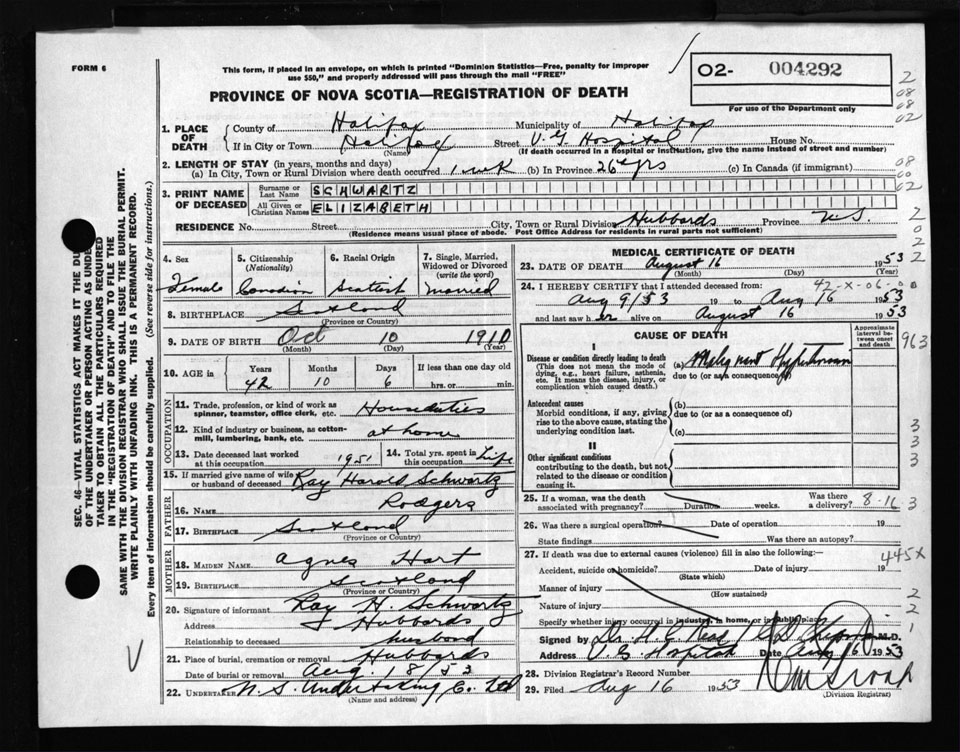 FORM 6
This form, if placed in an envelope, on which is printed "Dominion Statistics—Free, penalty for improper
use $50," and properly addressed will pass through the mail "FREE"
PROVINCE OF NOVA SCOTIA—REGISTRATION OF DEATH
02- 004292
For use of the Department only
2
08
08
02
1. PLACE OF DEATH
County of Halifax Municipality of Halifax
If in City or Town Halifax Street V.G. Hospital House No.
(Name) (If death occurred in a hospital or institution, give the name instead of street and number)
2. LENGTH OF STAY (in years, months and days)
(a) In City, Town or Rural Division where death occurred 1 wk (b) In Province 26 yrs (c) In Canada (if immigrant)
08
00
02
3. PRINT NAME OF DECEASED
Surname or Last Name SCHWARTZ
All Given or Christian Names ELIZABETH
RESIDENCE No. Street City, Town or Rural Division Hubbards Province N.S.
(Residence means usual place of abode. Post Office Address for residents in rural parts not sufficient)
2
0
2
2
SEC. 46—VITAL STATISTICS ACT MAKES IT THE DU
OF THE UNDERTAKER OR PERSON ACTING AS UNDE
TAKER TO OBTAIN ALL THE PARTICULARS REQUIRED
IN THE "REGISTRATION OF DEATH" AND TO FILE THE
SAME WITH THE DIVISION REGISTRAR WHO SHALL ISSUE THE BURIAL PERMIT.
WRITE PLAINLY WITH UNFADING INK. THIS IS A PERMANENT RECORD.
Every item of information should be carefully supplied. (See reverse side for instructions.)
4. Sex
Female
5. Citizenship
(Nationality)
Canadian
6. Racial Origin
Scottish
7. Single, Married,
Widowed or Divorced
(write the word)
married
8. BIRTHPLACE Scotland
(Province or Country)
9. DATE OF BIRTH Oct 10 1910
(Month) (Day) (Year)
10. AGE in
Years Months Days If less than one day old
42 10 6 hrs. or min.
OCCUPATION
11. Trade, profession, or kind of work as
spinner, teamster, office clerk, etc. Houseduties
12. Kind of industry or business, as cotton-
mill, lumbering, bank, etc. at home
13. Date deceased last worked
at this occupation 1951
14. Total yrs. spent in
this occupation Life
15. If married give name of wife
or husband of deceased Ray Harold Schwartz
FATHER
16. Name Rodgers
17. BIRTHPLACE Scotland
(Province or Country)
MOTHER
18. MAIDEN NAME Agnes Hart
19. BIRTHPLACE Scotland
(Province or Country)
20. Signature of informant Ray H. Schwartz
Address Hubbards
Relationship to deceased husband
21. Place of burial, cremation or removal Hubbards
Date of burial or removal Aug. 18/53
22. UNDERTAKER N.S. Undertaking Co. Ltd
(Name and address)
MEDICAL CERTIFICATE OF DEATH
23. DATE OF DEATH August 16 1953
(Month) (Day) (Year)
24. I HEREBY CERTIFY that I attended deceased from: 42-X-06-00
Aug 9/53 19 to Aug 16 1953
and last saw her alive on August 16 1953
CAUSE OF DEATH
Approximate
interval be-
tween onset
and death
963
I
Disease or condition directly leading to death
(This does not mean the mode of
dying, e.g., heart failure, asthenia,
etc. It means the disease, injury, or
complication which caused death.)
(a) Malignant Hypertension
due to (or as a consequence of)
Antecedent causes
Morbid conditions, if any, giving
rise to the above cause, stating the
underlying condition last.
(b)
due to (or as a consequence of)
(c)
3
3
3
II
Other significant conditions
contributing to the death, but not
related to the disease or condition
causing it.
25. If a woman, was the death
associated with pregnancy? Duration weeks. Was there
a delivery? 8-16 3
26. Was there a surgical operation? Date of operation 19
State findings Was there an autopsy?
27. If death was due to external causes (violence) fill in also the following:—
445X
Accident, suicide or homicide? Date of injury 19
(State which)
Manner of injury
(How sustained)
Nature of injury
2
2
Specify whether injury occurred in industry, in home, or in public place
1
Signed by Dr. H.C. Read M.D.
Address V.G. Hospital Date Aug 16 1953
28. Division Registrar's Record Number
29. Filed Aug 16 1953
(Division Registrar)